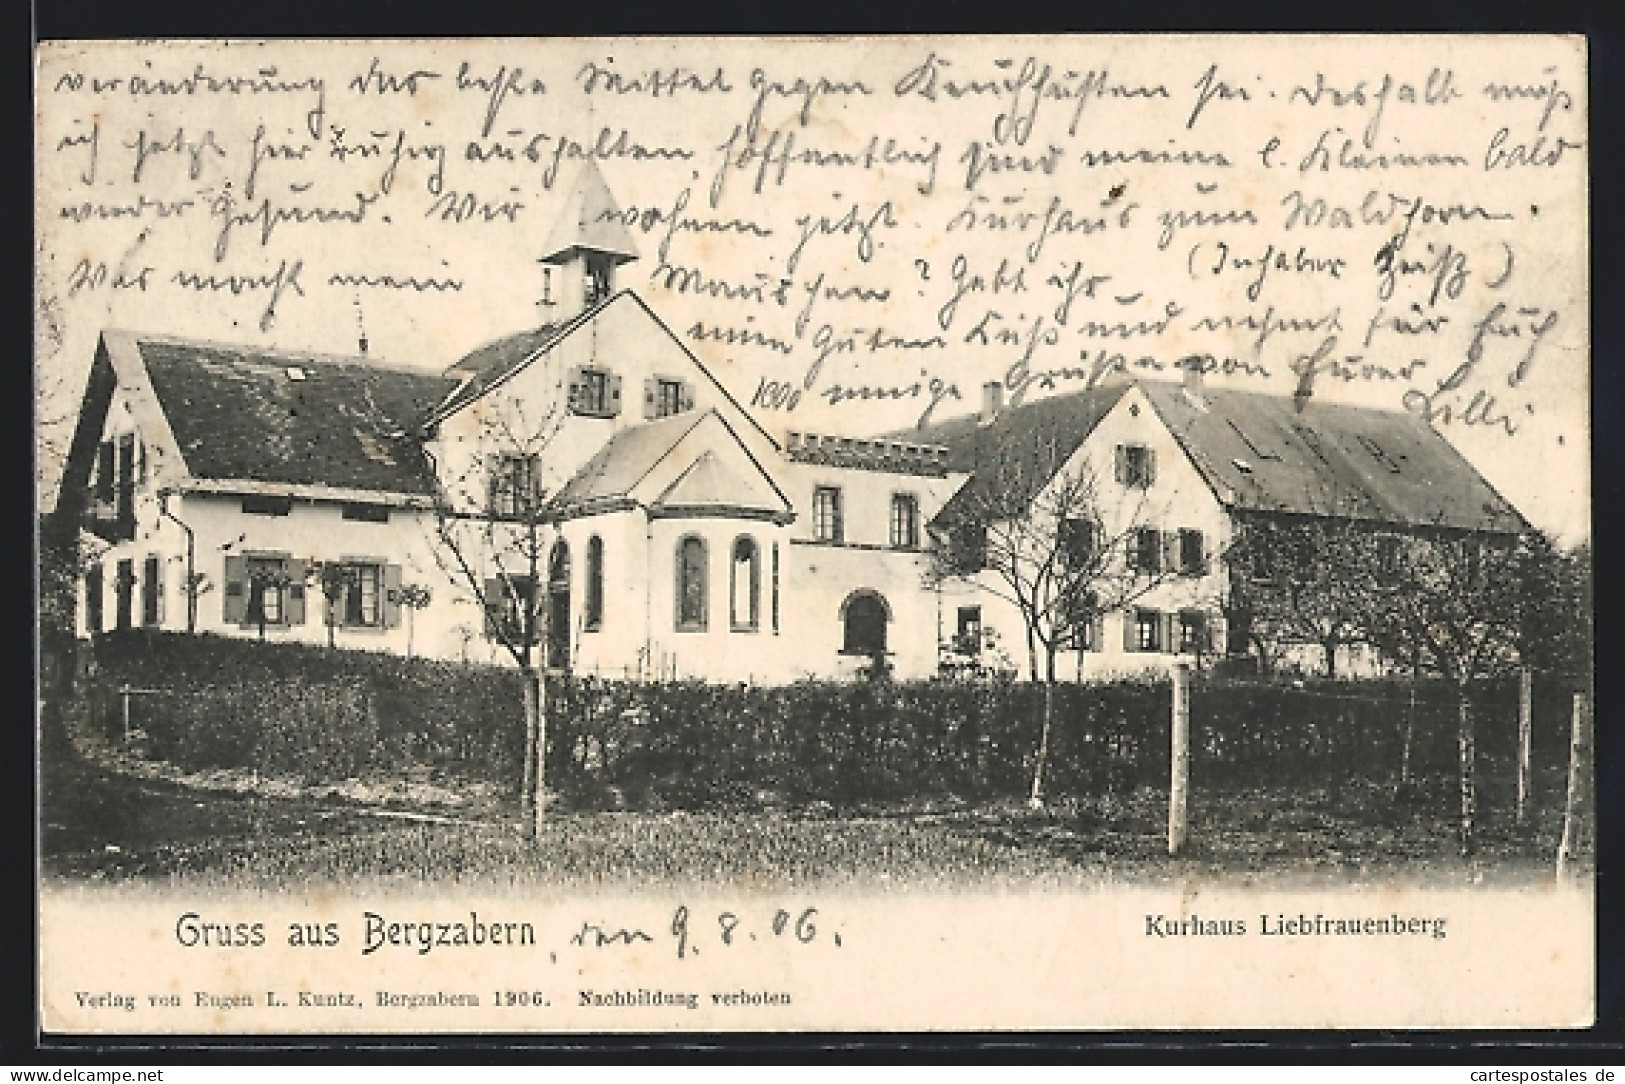 veränderung das beste Mittel gegen Keuchhusten sei. Deshalb muß
ich jetzt hier ruhig aushalten, hoffentlich sind meine l. Kleinen bald
wieder gesund. Wir wohnen jetzt Kurhaus zum Waldhorn.
(Inhaber Heiß)
Was macht mein Mauschen? Gebt ihr
einen guten Kuß und nehmt für Euch
1000 innige Grüße von Eurer
Lilli.
L. F. B.
Gruss aus Bergzabern, den 9.8.06.
Kurhaus Liebfrauenberg
Verlag von Eugen L. Kuntz, Bergzabern 1906. Nachbildung verboten
cartespostales.de